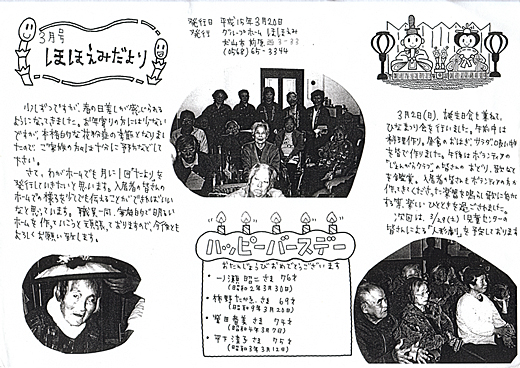 3月号
ほほえみだより
発行日 平成15年3月20日
発行 グループホーム ほほえみ
犬山市前原西3-33
(0568)65-3344
少しずつですが、春の日差しが感じられる
ようになってきました。お年寄りの方には少ない
ですが、本格的な花粉症の季節となりまし
たので、ご家族の方々は十分に気をつけて下
さい。
さて、わがホームでも月に1回“たより”を
発行していきたいと思います。入居者の皆さんの
ホームでの様子を少しでも伝えることができればいい
なと思っています。職員一同、家庭的で明るい
ホームを作っていこうと頑張っておりますので、今後とも
よろしくお願い致します。
3月2日(日)、誕生日会も兼ねて、
ひなまつり会を行いました。午前中は
料理作り。昼食のおはぎ、サラダ、吸い物
を皆で作りました。午後はボランティアの
皆さんのおどり、歌など
を鑑賞。入居者の皆さんもボランティアの方の
作ってきてくださった楽器を鳴らし、歌に合わ
せ、楽しいひとときを過ごされました。
次回は、3/29(土)児童センターの
皆さんによる「人形劇」を予定しております
ハッピーバースデー
おたんじょうびおめでとうございます
・一ノ瀬 昭二 さま 76才
(昭和2年3月30日)
・柿野 たかを さま 69才
(昭和9年3月20日)
・さま 74才
(昭和4年3月7日)
・平下 清子 さま 75才
(昭和3年3月12日)